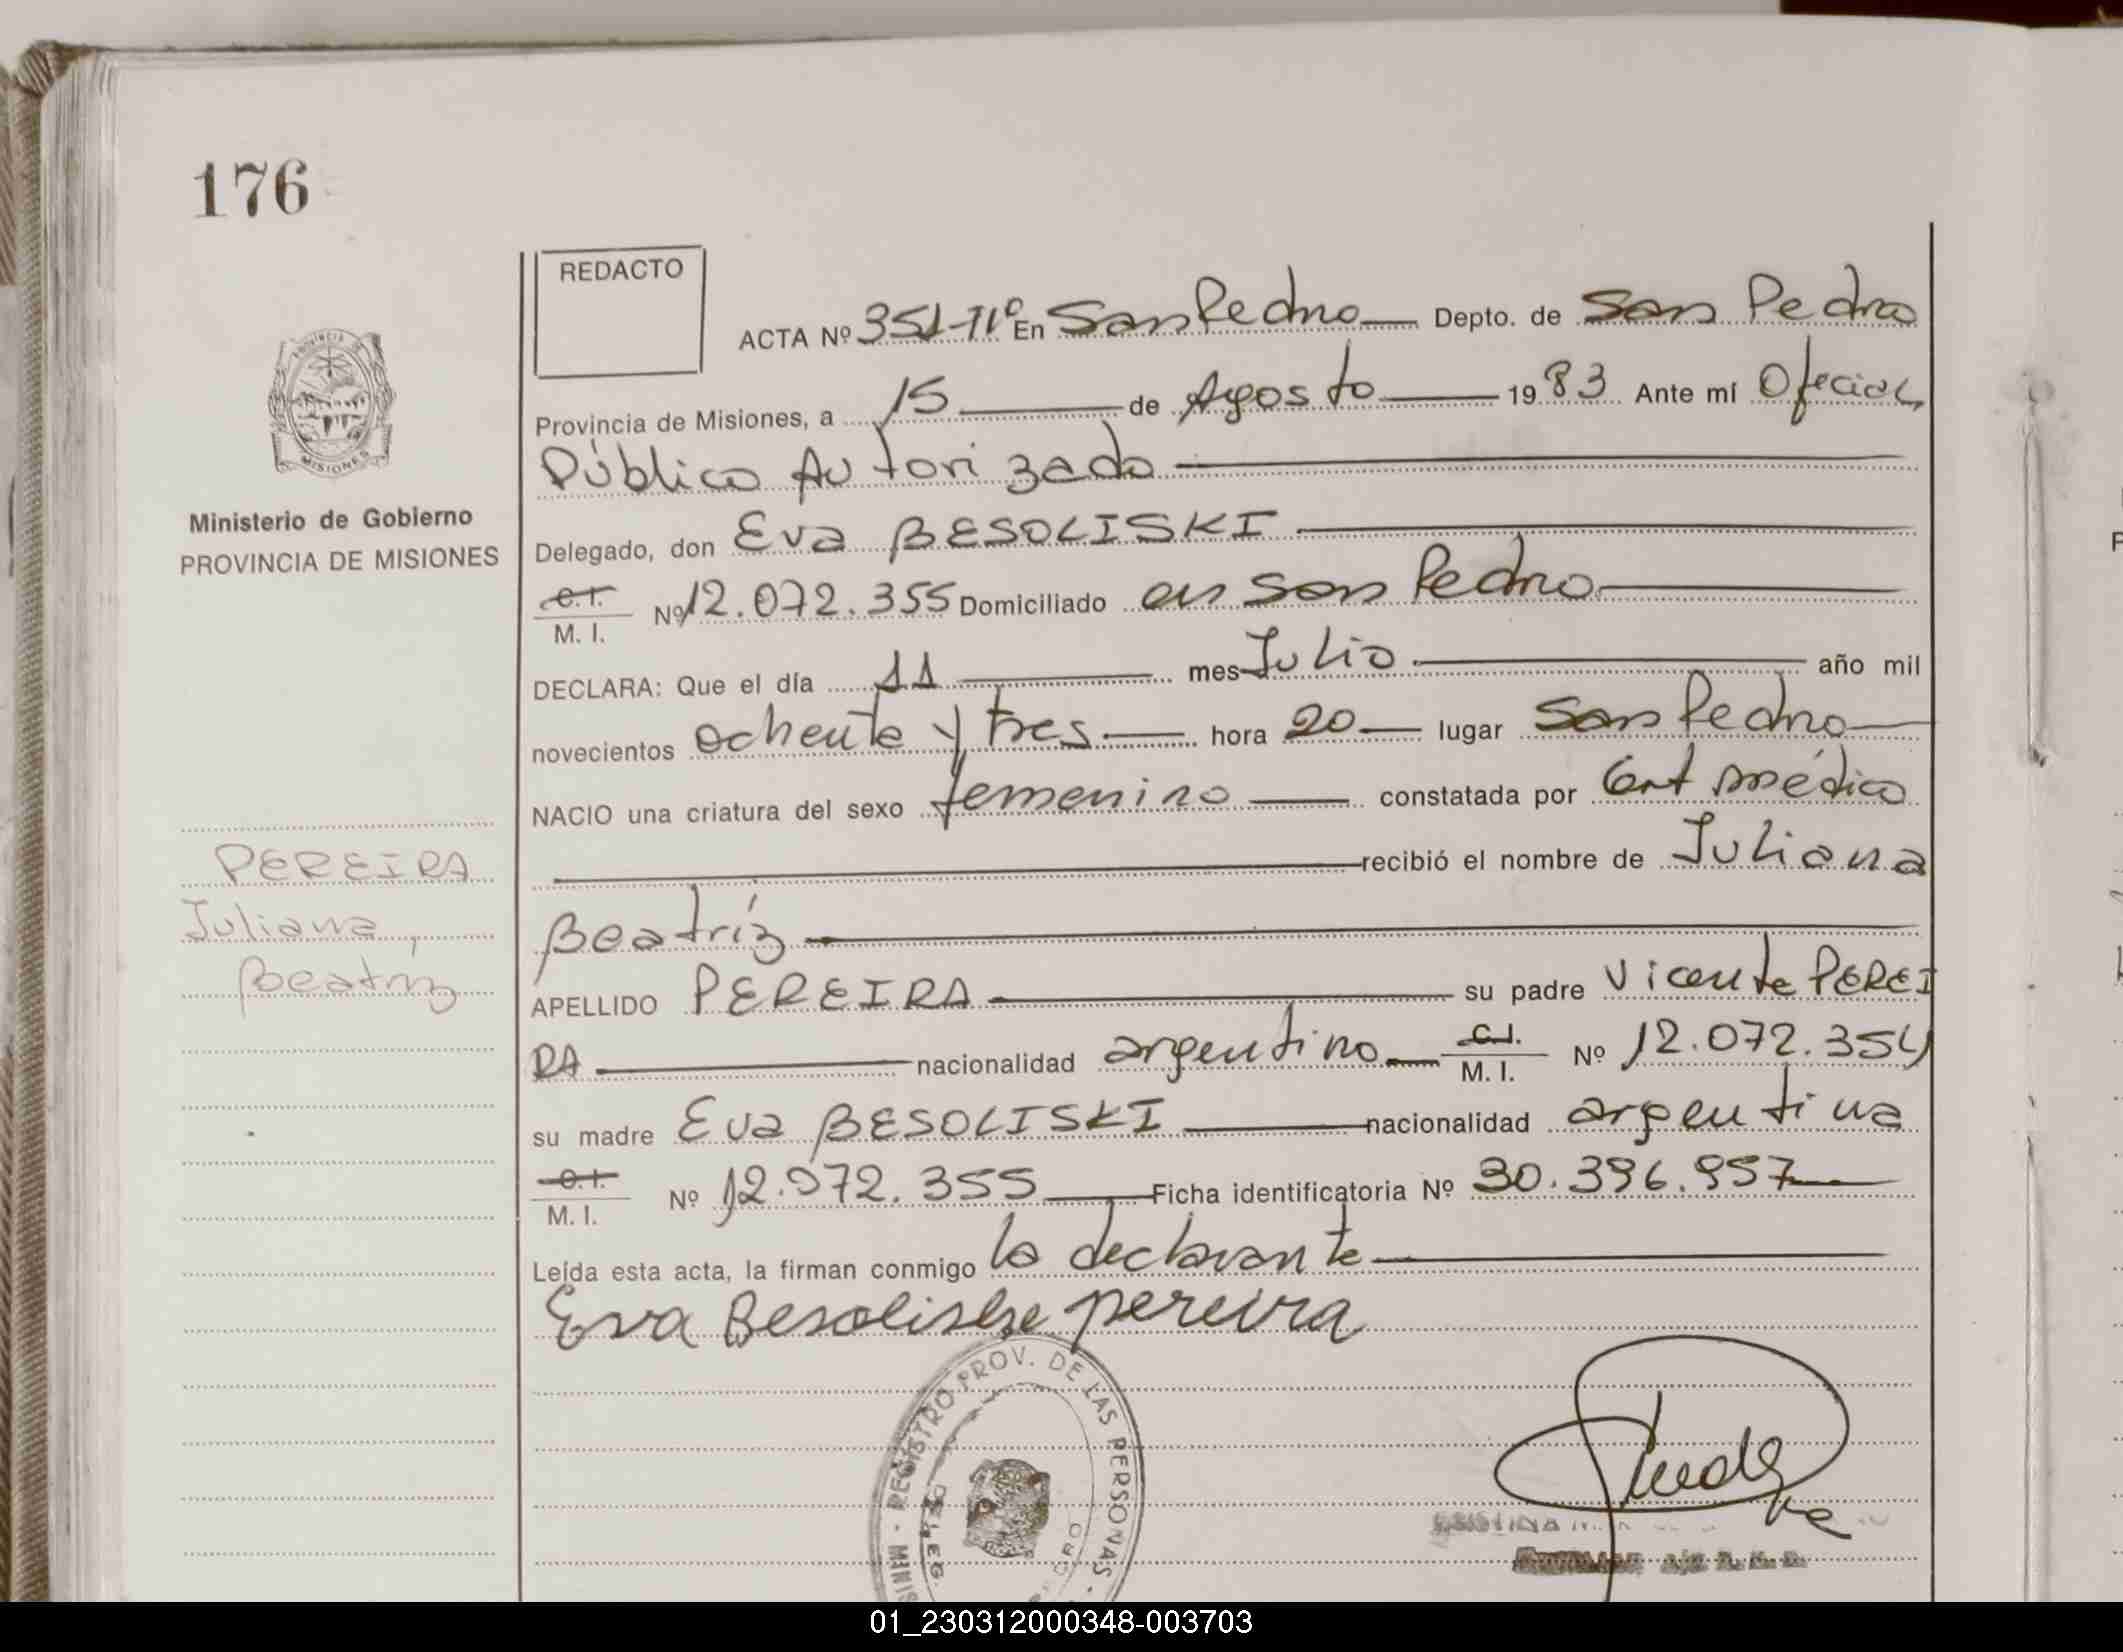 176
REDACTO
ACTA Nº 351-Tº II En San Pedro Depto. de San Pedro
Provincia de Misiones, a 15 de Agosto 1983 Ante mí Oficial
Público Autorizado
Delegado, don Eva BESOLISKI
C.I. M. I. Nº 12.072.355 Domiciliado en San Pedro
DECLARA: Que el día 11 mes Julio año mil
novecientos ochenta y tres hora 20 lugar San Pedro
NACIO una criatura del sexo femenino constatada por Cert médico
recibió el nombre de Juliana
Beatríz
APELLIDO PEREIRA su padre Vicente PEREI
RA nacionalidad argentino C.I. M. I. Nº 12.072.354
su madre Eva BESOLISKI nacionalidad argentina
C.I. M. I. Nº 12.072.355 Ficha identificatoria Nº 30.396.957
Leída esta acta, la firman conmigo la declarante
Eva Besoliske pereira
PROVINCIA DE
MISIONES
Ministerio de Gobierno
PROVINCIA DE MISIONES
PEREIRA
Juliana,
Beatríz
MINIS - REGISTRO PROV. DE LAS PERSONAS -
DELEG.
01_230312000348-003703